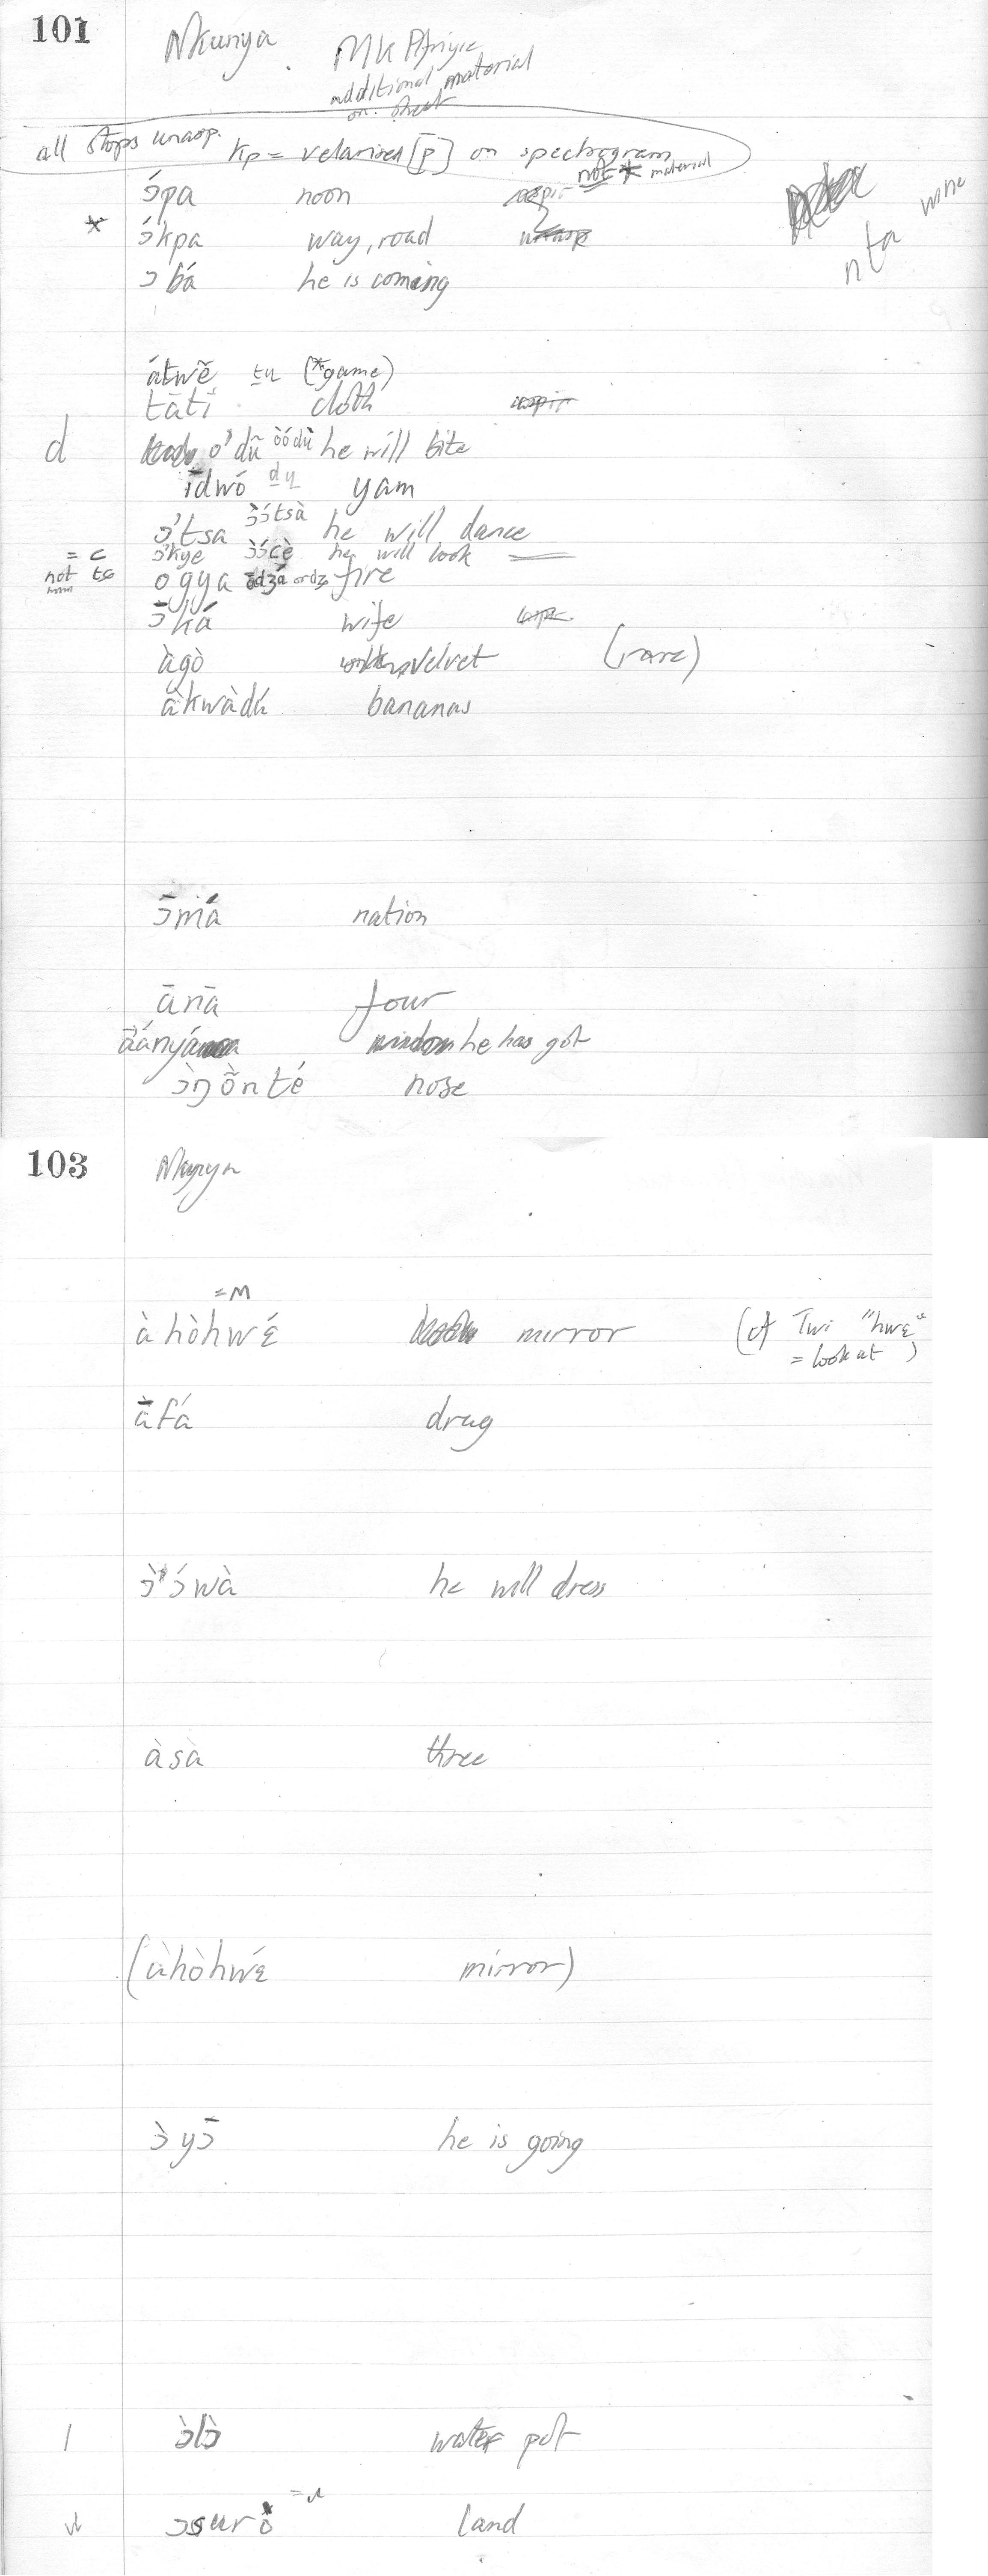 101 Nkunya
additional material
on sheet
all stops unasp.
kp = velarized [p] on spectrogram
not * material
ɔ́pa noon
* ɔ́kpa way, road
ɔ bá he is coming
nta wine
átwẽ (*game)
tātí cloth
d o'dũ òódù he will bite
īdwó yam
ɔ'tsa ɔ̀ɔ́tsà he will dance
= c ɔ'kye ɔ̀ɔ́cè he will look
not tɕ ogya fire
ɔ̄ká wife
àgò velvet (rare)
àkwàdú bananas
ɔ̄má nation
ānā four
àányá he has got
ɔ̀ŋɔ̃̀nté nose
103 Nkunya
=ʍ
àhòhwɛ́ mirror (cf Twi "hwɛ"
= look at)
āfá drug
ɔ̀ɔ́wà he will dress
àsà three
(àhòhwɛ́ mirror)
ɔ̀yɔ̄ he is going
l ɔ̀lɔ̀ water pot
ɔsurò land